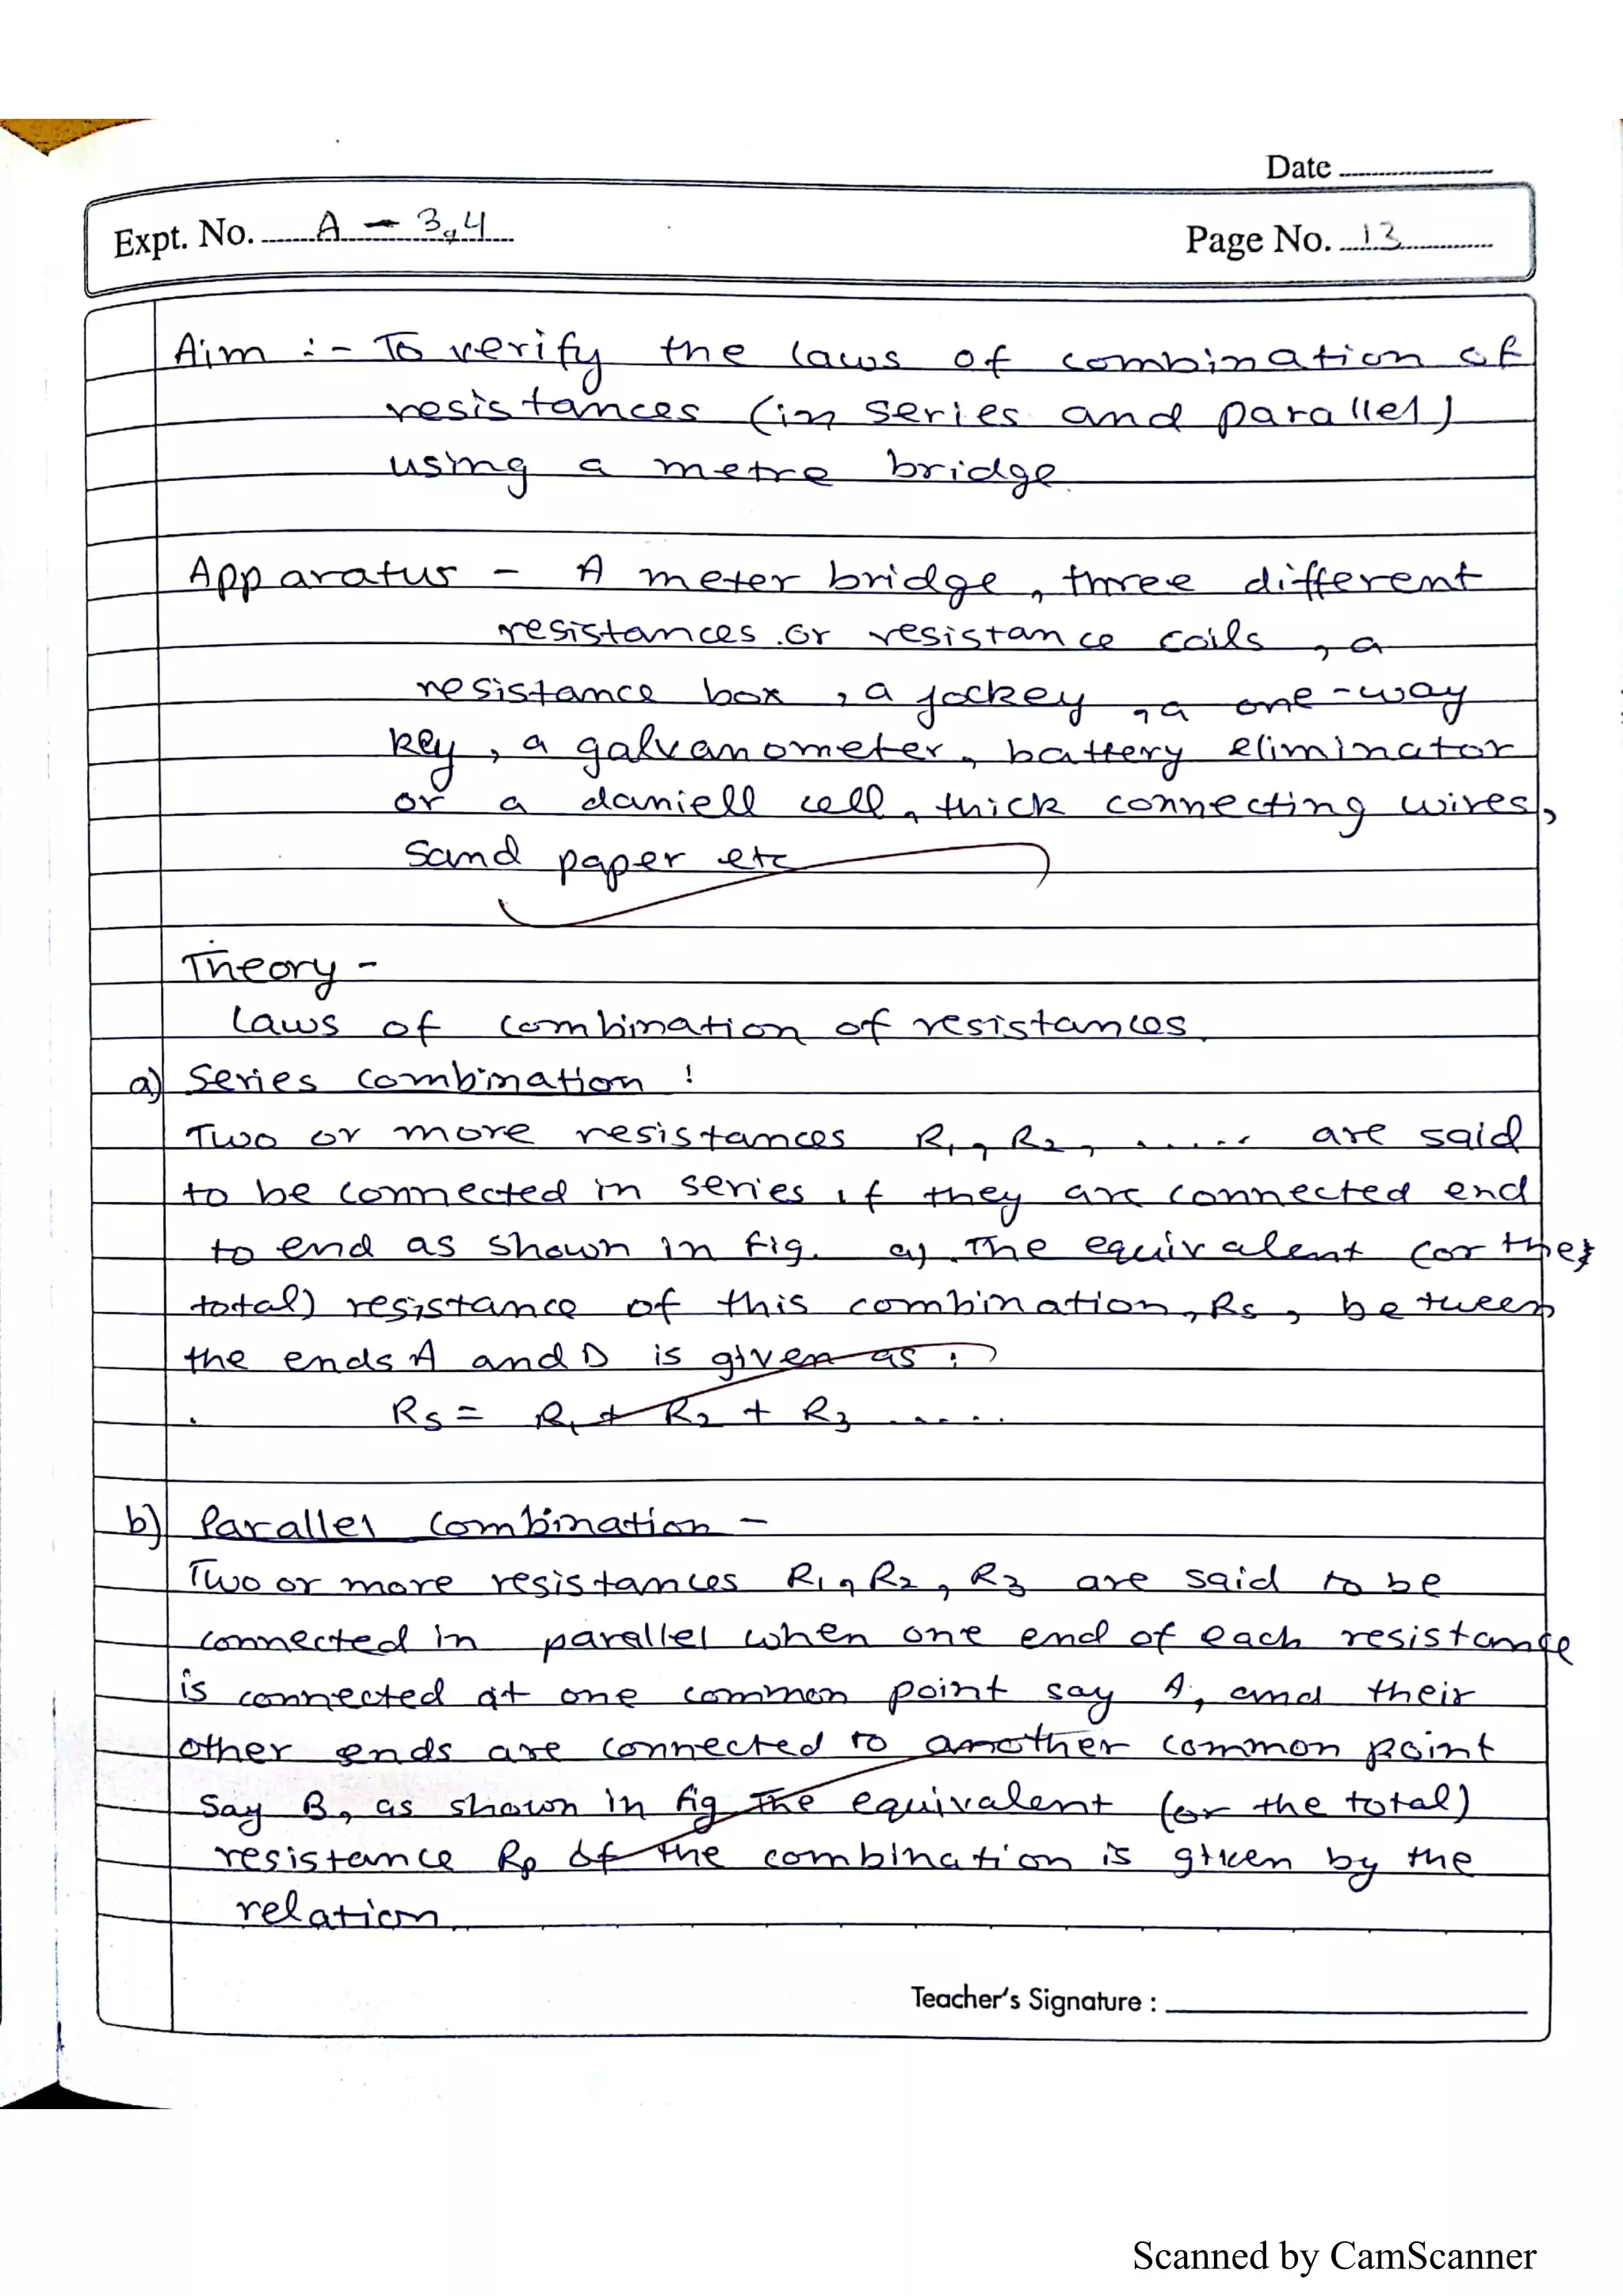 Date
Expt. No. A - 3,4
Page No. 13
Aim :- To verify the laws of combination of
resistances (in series and parallel)
using a metre bridge.
Apparatus - A meter bridge, three different
resistances or resistance coils, a
resistance box, a jockey, a one-way
key, a galvanometer, battery eliminator
or a daniell cell, thick connecting wires,
Sand paper etc
Theory -
Laws of combination of resistances.
a) Series combination :
Two or more resistances R1, R2, ..... are said
to be connected in series if they are connected end
to end as shown in fig. a). The equivalent (or the
total) resistance of this combination, Rs, between
the ends A and D is given as :
Rs = R1 + R2 + R3 .....
b) Parallel combination -
Two or more resistances R1, R2, R3 are said to be
connected in parallel when one end of each resistance
is connected at one common point say A, and their
other ends are connected to another common point
say B, as shown in fig The equivalent (or the total)
resistance Rp of the combination is given by the
relation.
Teacher's Signature :
Scanned by CamScanner